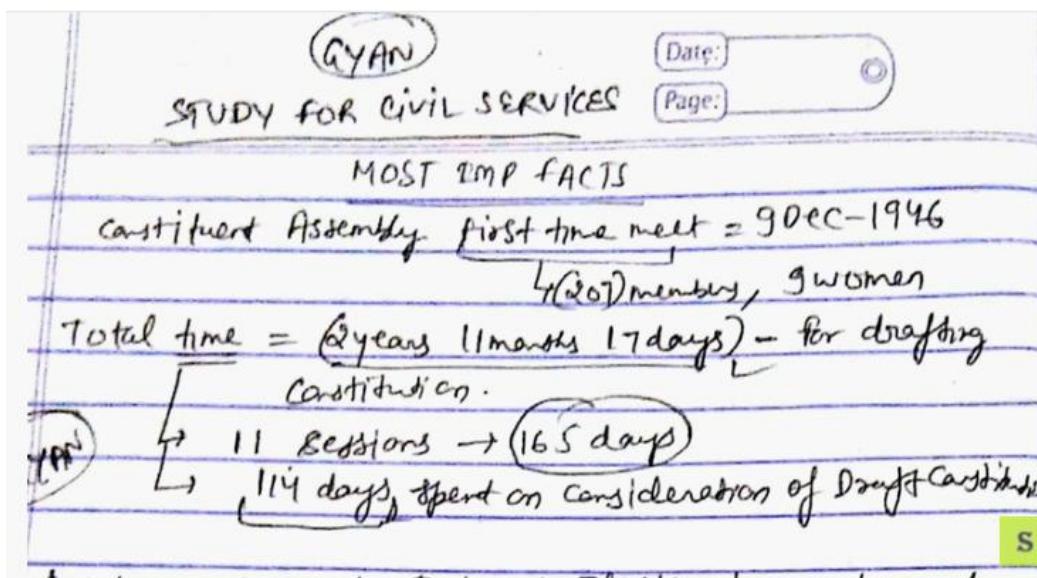 GYAN
Date:
STUDY FOR CIVIL SERVICES
Page:
MOST IMP FACTS
Constituent Assembly first time meet = 9 Dec-1946
↳ (207) members, 9 women
Total time = (2 years 11 months 17 days) - for drafting
Constitution.
→ 11 sessions → 165 days
YAN
→ 114 days, spent on consideration of Draft Constitution
S